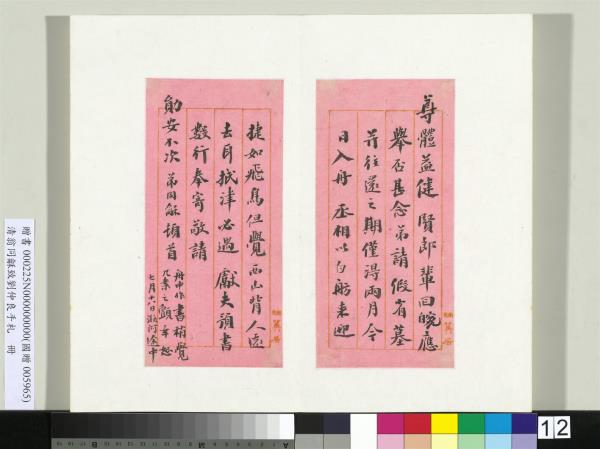 尊體益健賢郎輩回皖應
舉否甚念弟請假省墓
并往還之期僅得兩月今
日入舟丞相以白舫來迎
捷如飛鳥但覺西山背人遠
去耳抵津必遇獻夫預書
數行奉寄敬請
勛安不次 弟同龢頓首
舟中作書稍覺
几案之顫
七月廿八日潞河途中
贈書 000225N000000000(國贈 005965)
清翁同龢致劉仲良手札 冊
12